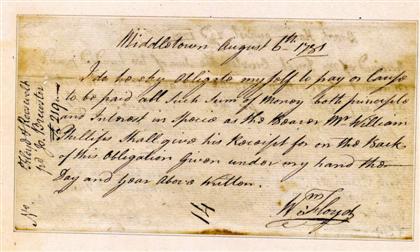 Middletown August 6th 1781
I do hereby Obligate myself to pay or Cause
to be paid all Such Sum of Money both principle
and Interest in Specie as the Bearer Mr William
Phillips Shall give his Receipt for on the Back
of this Obligation Given under my hand the
Day and year Above Written.
Wm Floyd
14
No.
Floyd &
pd Brewster
£219